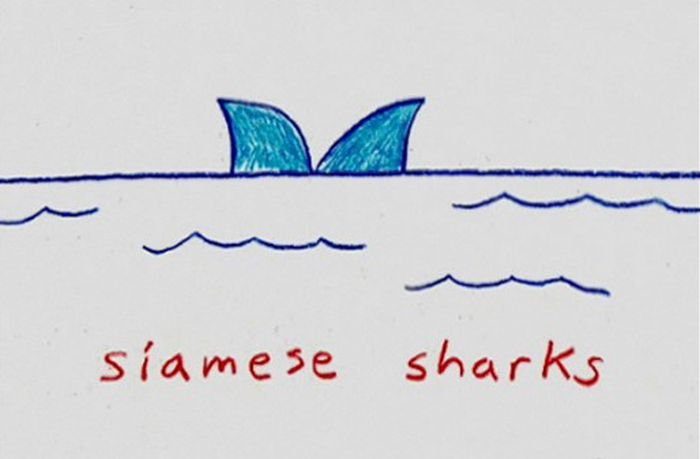 siamese sharks